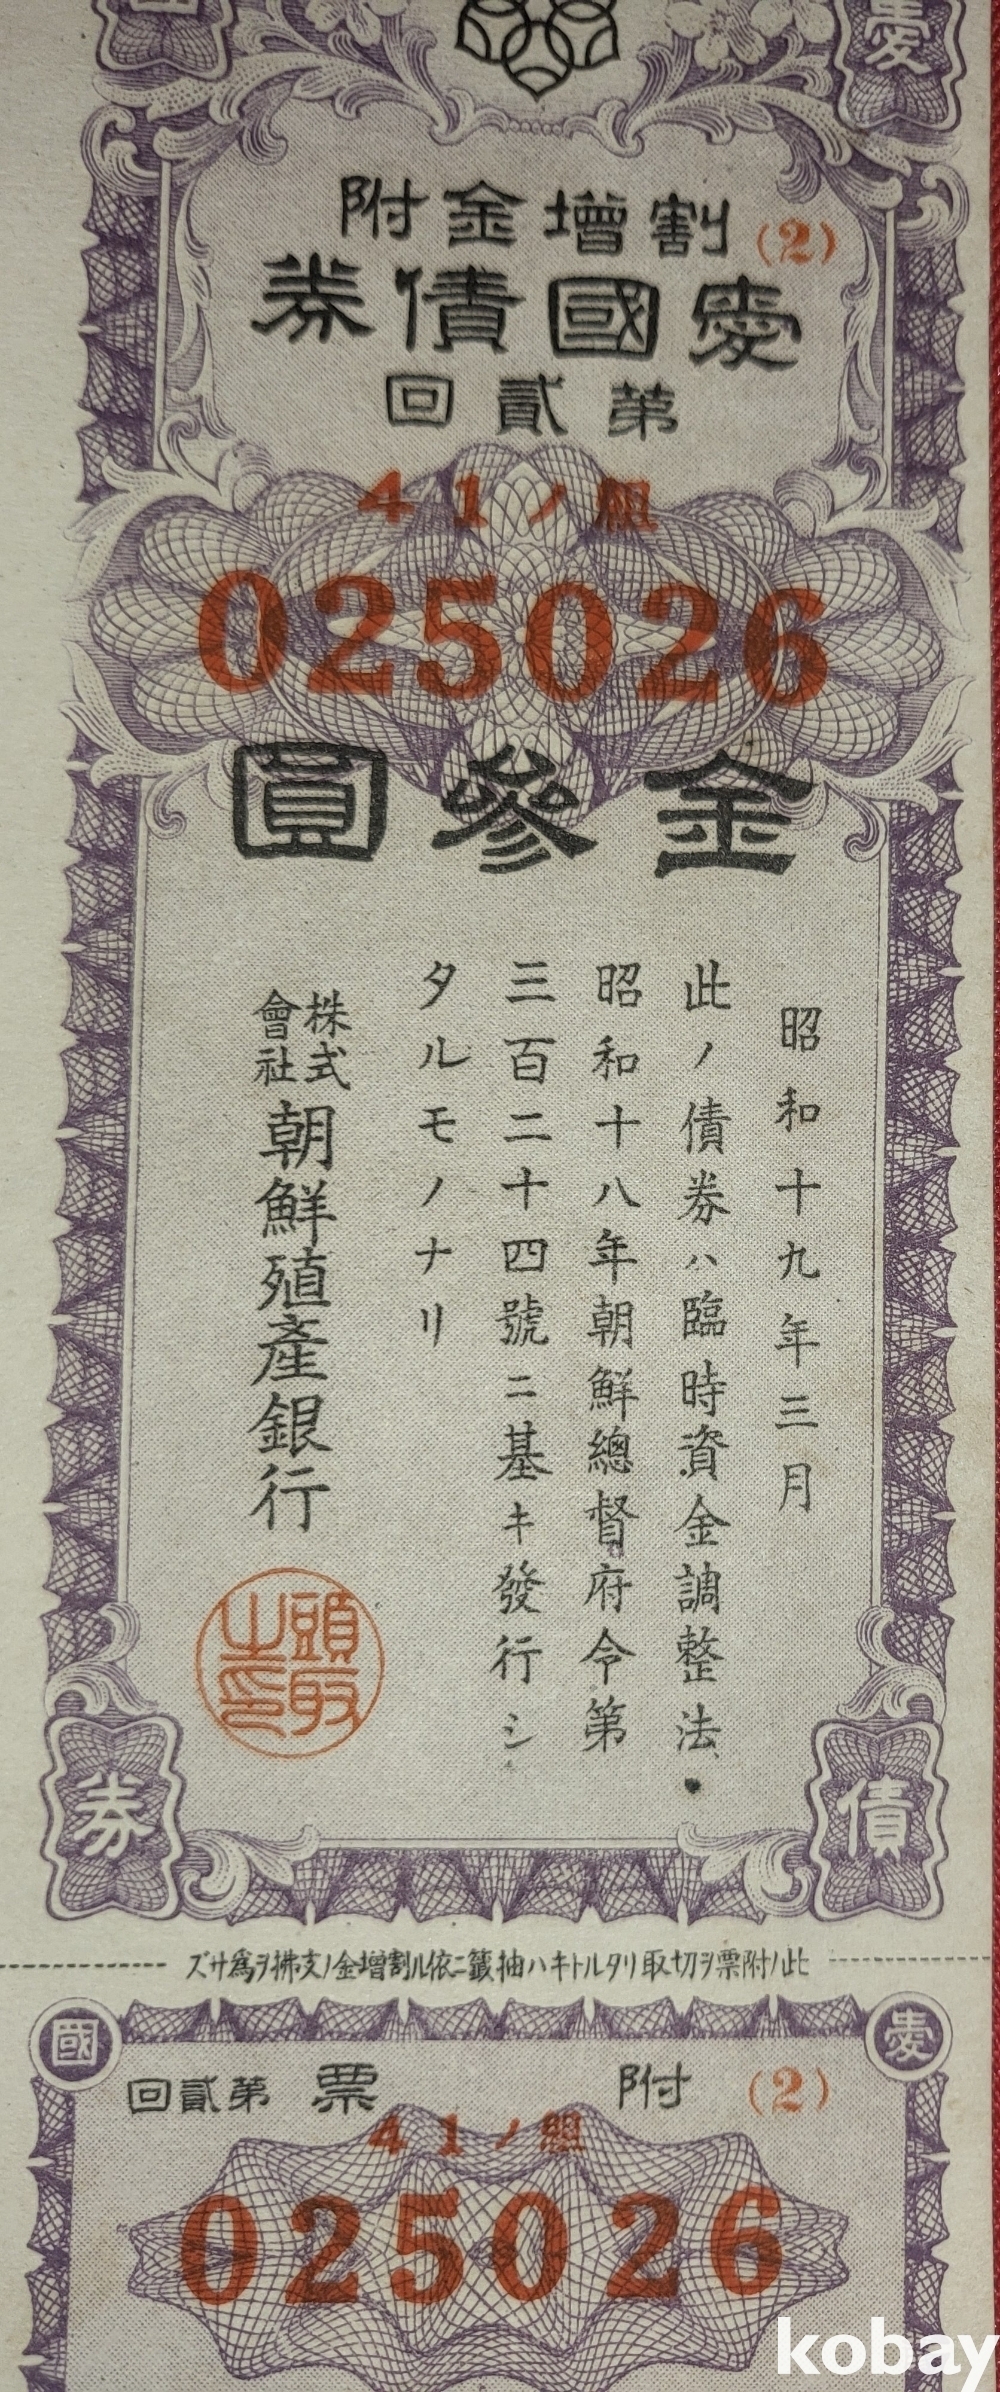 愛
國
割增金附
(2)
愛國債券
第貳回
41ノ組
025026
金參圓
昭和十九年三月
此ノ債券ハ臨時資金調整法・
昭和十八年朝鮮總督府令第
三百二十四號ニ基キ發行シ
タルモノナリ
株式會社朝鮮殖產銀行
頭取之印
債
券
此ノ附票ヲ切取リタルトキハ抽籤ニ依ル割增金ノ支拂ヲ爲サズ
愛
國
(2)
附票
第貳回
41ノ組
025026
kobay